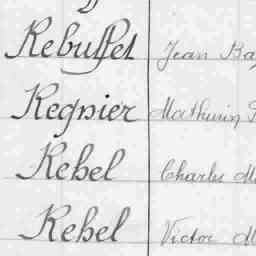 Rebuffet Jean Ba
Regnier Mathurin
Rebel Charles M
Rebel Victor M